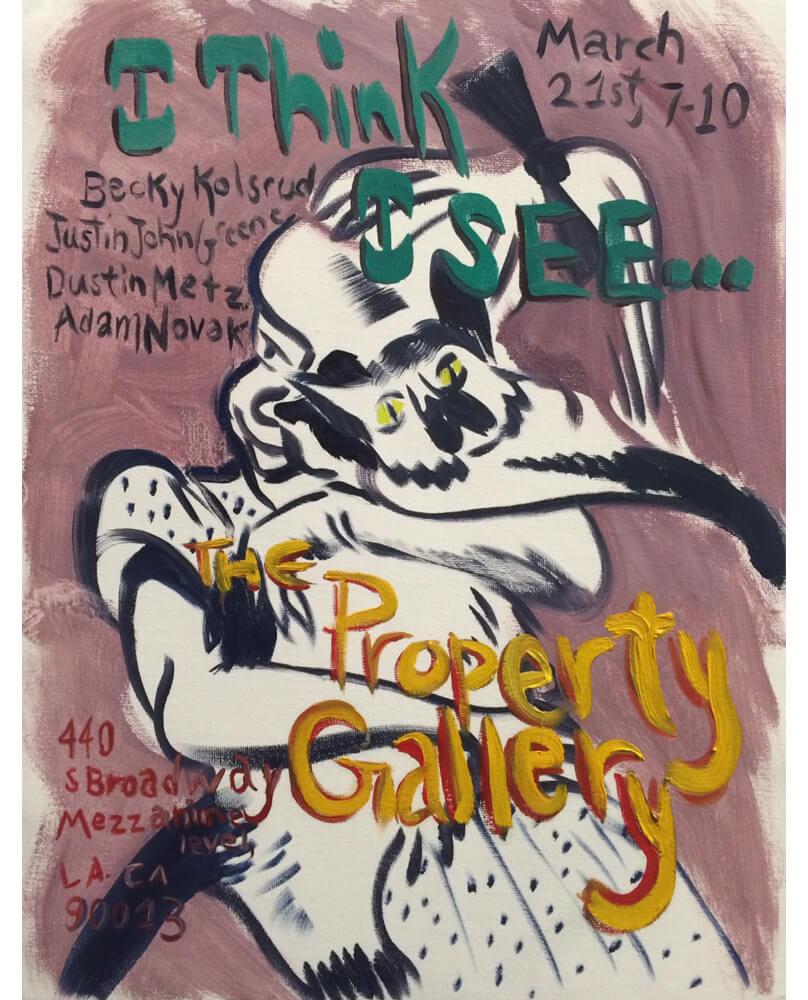 I Think
I SEE...
March
21st, 7-10
Becky Kolsrud
Justin John Greene
Dustin Metz
Adam Novak
THE
Property
Gallery
440
S Broadway
Mezzanine
level
L.A. CA
90013